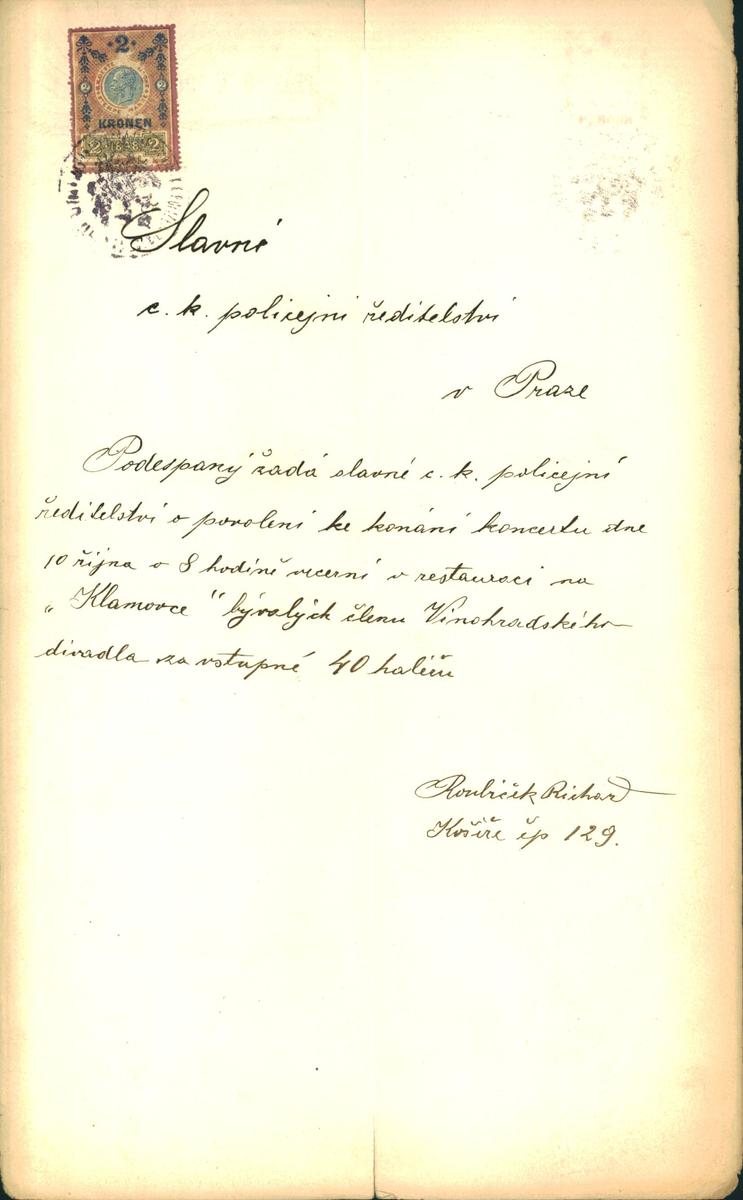 2
KRONEN
2 1898 2
Slavné
c. k. policejní ředitelství
v Praze
Podespaný žádá slavné c. k. policejní
ředitelství o povolení ke konání koncertu dne
10 října o 8 hodině vecerní v restauraci na
„Klamovce" bývalých členu Vinohradského
divadla za vstupné 40 haléřu
Roubiček Richard
Košíře čp 129.